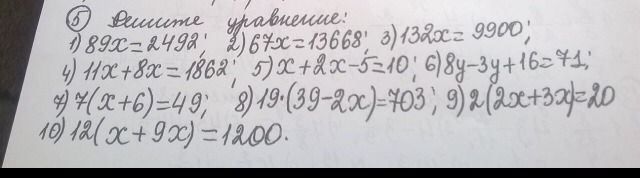 ⑤ Решите уравнение:
1) 89x=2492; 2) 67x=13668; 3) 132x=9900;
4) 11x+8x=1862; 5) x+2x-5=10; 6) 8y-3y+16=71;
7) 7(x+6)=49; 8) 19·(39-2x)=703; 9) 2(2x+3x)=20
10) 12(x+9x)=1200.